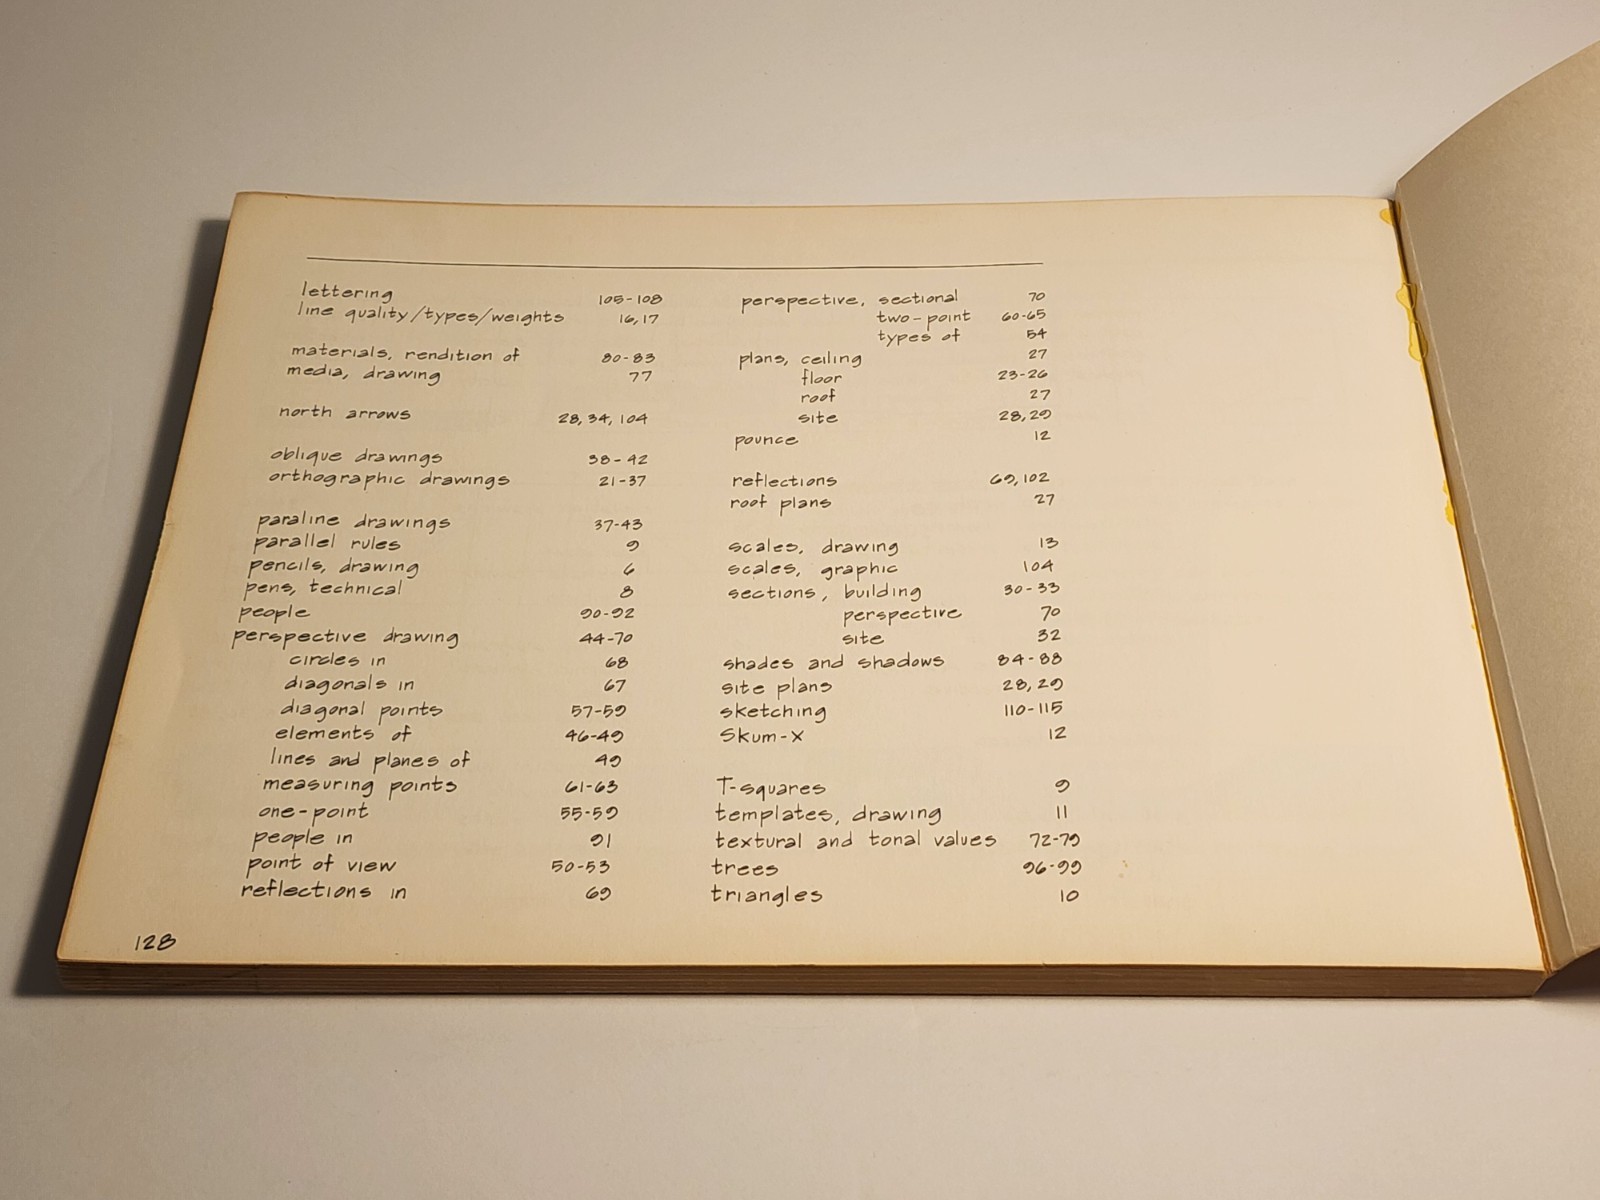 lettering 105-108
line quality/types/weights 16,17
materials, rendition of 80-83
media, drawing 77
north arrows 28, 34, 104
oblique drawings 38-42
orthographic drawings 21-37
paraline drawings 37-43
parallel rules 9
pencils, drawing 6
pens, technical 8
people 90-92
perspective drawing 44-70
circles in 68
diagonals in 67
diagonal points 57-59
elements of 46-49
lines and planes of 49
measuring points 61-63
one-point 55-59
people in 91
point of view 50-53
reflections in 69
perspective, sectional 70
two-point 60-65
types of 54
plans, ceiling 27
floor 23-26
roof 27
site 28,29
pounce 12
reflections 69,102
roof plans 27
scales, drawing 13
scales, graphic 104
sections, building 30-33
perspective 70
site 32
shades and shadows 84-88
site plans 28,29
sketching 110-115
Skum-x 12
T-squares 9
templates, drawing 11
textural and tonal values 72-79
trees 96-99
triangles 10
128